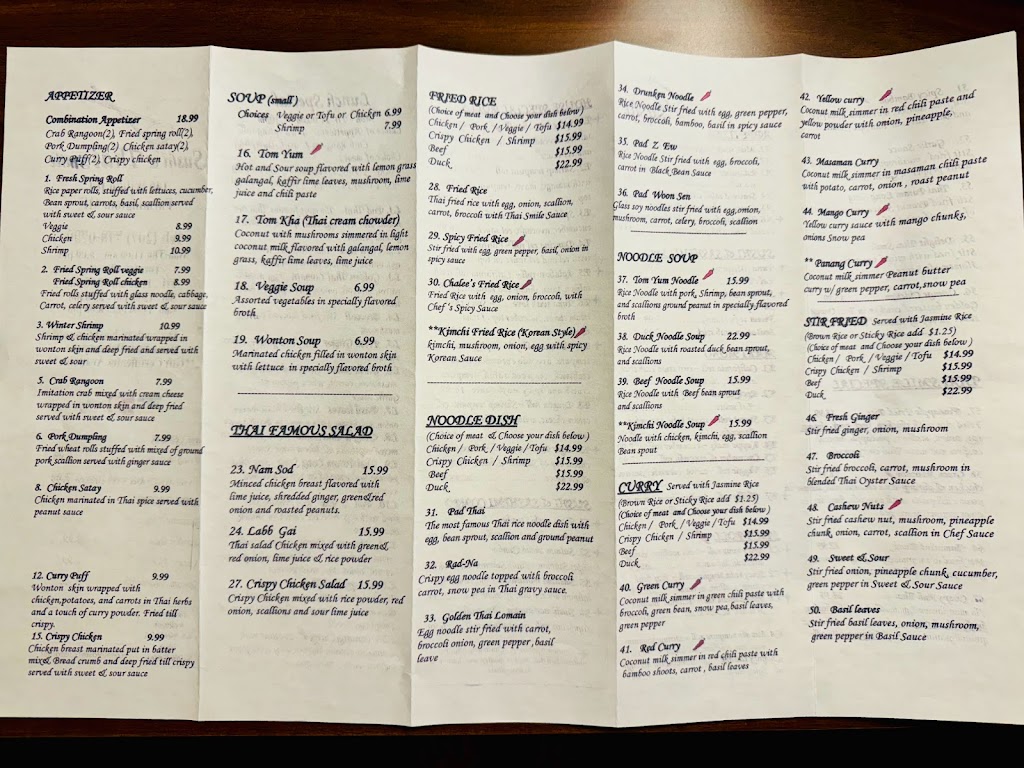 APPETIZER
Combination Appetizer 18.99
Crab Rangoon(2), Fried spring roll(2),
Pork Dumpling(2) Chicken satay(2),
Curry Puff(2), Crispy chicken
1. Fresh Spring Roll
Rice paper rolls, stuffed with lettuces, cucumber,
Bean sprout, carrots, basil, scallion served
with sweet & sour sauce
Veggie 8.99
Chicken 9.99
Shrimp 10.99
2. Fried Spring Roll veggie 7.99
Fried Spring Roll chicken 8.99
Fried rolls stuffed with glass noodle, cabbage,
Carrot, celery served with sweet & sour sauce
3. Winter Shrimp 10.99
Shrimp & chicken marinated wrapped in
wonton skin and deep fried and served with
sweet & sour
5. Crab Rangoon 7.99
Imitation crab mixed with cream cheese
wrapped in wonton skin and deep fried
served with sweet & sour sauce
6. Pork Dumpling 7.99
Fried wheat rolls stuffed with mixed of ground
pork scallion served with ginger sauce
8. Chicken Satay 9.99
Chicken marinated in Thai spice served with
peanut sauce
12. Curry Puff 9.99
Wonton skin wrapped with
chicken,potatoes, and carrots in Thai herbs
and a touch of curry powder. Fried till
crispy.
15. Crispy Chicken 9.99
Chicken breast marinated put in batter
mix& Bread crumb and deep fried till crispy
served with sweet & sour sauce
SOUP (small)
Choices Veggie or Tofu or Chicken 6.99
Shrimp 7.99
16. Tom Yum
Hot and Sour soup flavored with lemon grass
galangal, kaffir lime leaves, mushroom, lime
juice and chili paste
17. Tom Kha (Thai cream chowder)
Coconut with mushrooms simmered in light
coconut milk flavored with galangal, lemon
grass, kaffir lime leaves, lime juice
18. Veggie Soup 6.99
Assorted vegetables in specially flavored
broth
19. Wonton Soup 6.99
Marinated chicken filled in wonton skin
with lettuce in specially flavored broth
THAI FAMOUS SALAD
23. Nam Sod 15.99
Minced chicken breast flavored with
lime juice, shredded ginger, green&red
onion and roasted peanuts.
24. Labb Gai 15.99
Thai salad Chicken mixed with green&
red onion, lime juice & rice powder
27. Crispy Chicken Salad 15.99
Crispy Chicken mixed with rice powder, red
onion, scallions and sour lime juice
FRIED RICE
(Choice of meat and Choose your dish below )
Chicken / Pork / Veggie / Tofu $14.99
Crispy Chicken / Shrimp $15.99
Beef $15.99
Duck $22.99
28. Fried Rice
Thai fried rice with egg, onion, scallion,
carrot, broccoli with Thai Smile Sauce
29. Spicy Fried Rice
Stir fried with egg, green pepper, basil, onion in
spicy sauce
30. Chalee's Fried Rice
Fried Rice with egg, onion, broccoli, with
Chef's Spicy Sauce
**Kimchi Fried Rice (Korean Style)
kimchi, mushroom, onion, egg with spicy
Korean Sauce
NOODLE DISH
(Choice of meat & Choose your dish below )
Chicken / Pork / Veggie / Tofu $14.99
Crispy Chicken / Shrimp $15.99
Beef $15.99
Duck $22.99
31. Pad Thai
The most famous Thai rice noodle dish with
egg, bean sprout, scallion and ground peanut
32. Rad-Na
Crispy egg noodle topped with broccoli
carrot, snow pea in Thai gravy sauce.
33. Golden Thai Lomain
Egg noodle stir fried with carrot,
broccoli onion, green pepper ,basil
leave
34. Drunken Noodle
Rice Noodle Stir fried with egg, green pepper,
carrot, broccoli, bamboo, basil in spicy sauce
35. Pad Z Ew
Rice Noodle Stir fried with egg, broccoli,
carrot in Black Bean Sauce
36. Pad Woon Sen
Glass soy noodles stir fried with egg,onion,
mushroom, carrot, celery, broccoli, scallion
NOODLE SOUP
37. Tom Yum Noodle 15.99
Rice Noodle with pork, Shrimp, bean sprout,
and scallions ground peanut in specially flavored
broth
38. Duck Noodle Soup 22.99
Rice Noodle with roasted duck, bean sprout,
and scallions
39. Beef Noodle Soup 15.99
Rice Noodle with Beef bean sprout
and scallions
**Kimchi Noodle Soup 15.99
Noodle with chicken, kimchi, egg, scallion
Bean spout
CURRY Served with Jasmine Rice
(Brown Rice or Sticky Rice add $1.25)
(Choice of meat and Choose your dish below )
Chicken / Pork / Veggie / Tofu $14.99
Crispy Chicken / Shrimp $15.99
Beef $15.99
Duck $22.99
40. Green Curry
Coconut milk simmer in green chili paste with
broccoli, green bean, snow pea,basil leaves,
green pepper
41. Red Curry
Coconut milk simmer in red chili paste with
bamboo shoots, carrot , basil leaves
42. Yellow curry
Coconut milk simmer in red chili paste and
yellow powder with onion, pineapple,
carrot
43. Masaman Curry
Coconut milk simmer in masaman chili paste
with potato, carrot, onion , roast peanut
44. Mango Curry
Yellow curry sauce with mango chunks,
onions Snow pea
**Panang Curry
Coconut milk simmer Peanut butter
curry w/ green pepper, carrot,snow pea
STIR FRIED Served with Jasmine Rice
(Brown Rice or Sticky Rice add $1.25)
(Choice of meat and Choose your dish below )
Chicken / Pork / Veggie / Tofu $14.99
Crispy Chicken / Shrimp $15.99
Beef $15.99
Duck $22.99
46. Fresh Ginger
Stir fried ginger, onion, mushroom
47. Broccoli
Stir fried broccoli, carrot, mushroom in
blended Thai Oyster Sauce
48. Cashew Nuts
Stir fried cashew nut, mushroom, pineapple
chunk, onion, carrot, scallion in Chef Sauce
49. Sweet & Sour
Stir fried onion, pineapple chunk, cucumber,
green pepper in Sweet & Sour Sauce
50. Basil leaves
Stir fried basil leaves, onion, mushroom,
green pepper in Basil Sauce